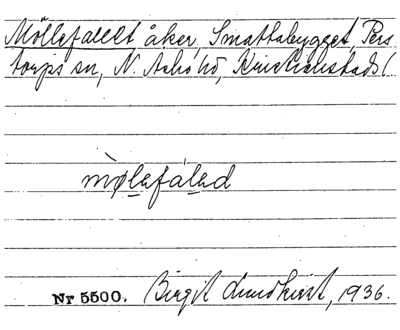 Möllefallet åker, Smattabygget, Pers
torps sn, N. Åsbo hd, Kristianstads l
mølefálad
Nr 5500. Birgit Lundkvist, 1936.